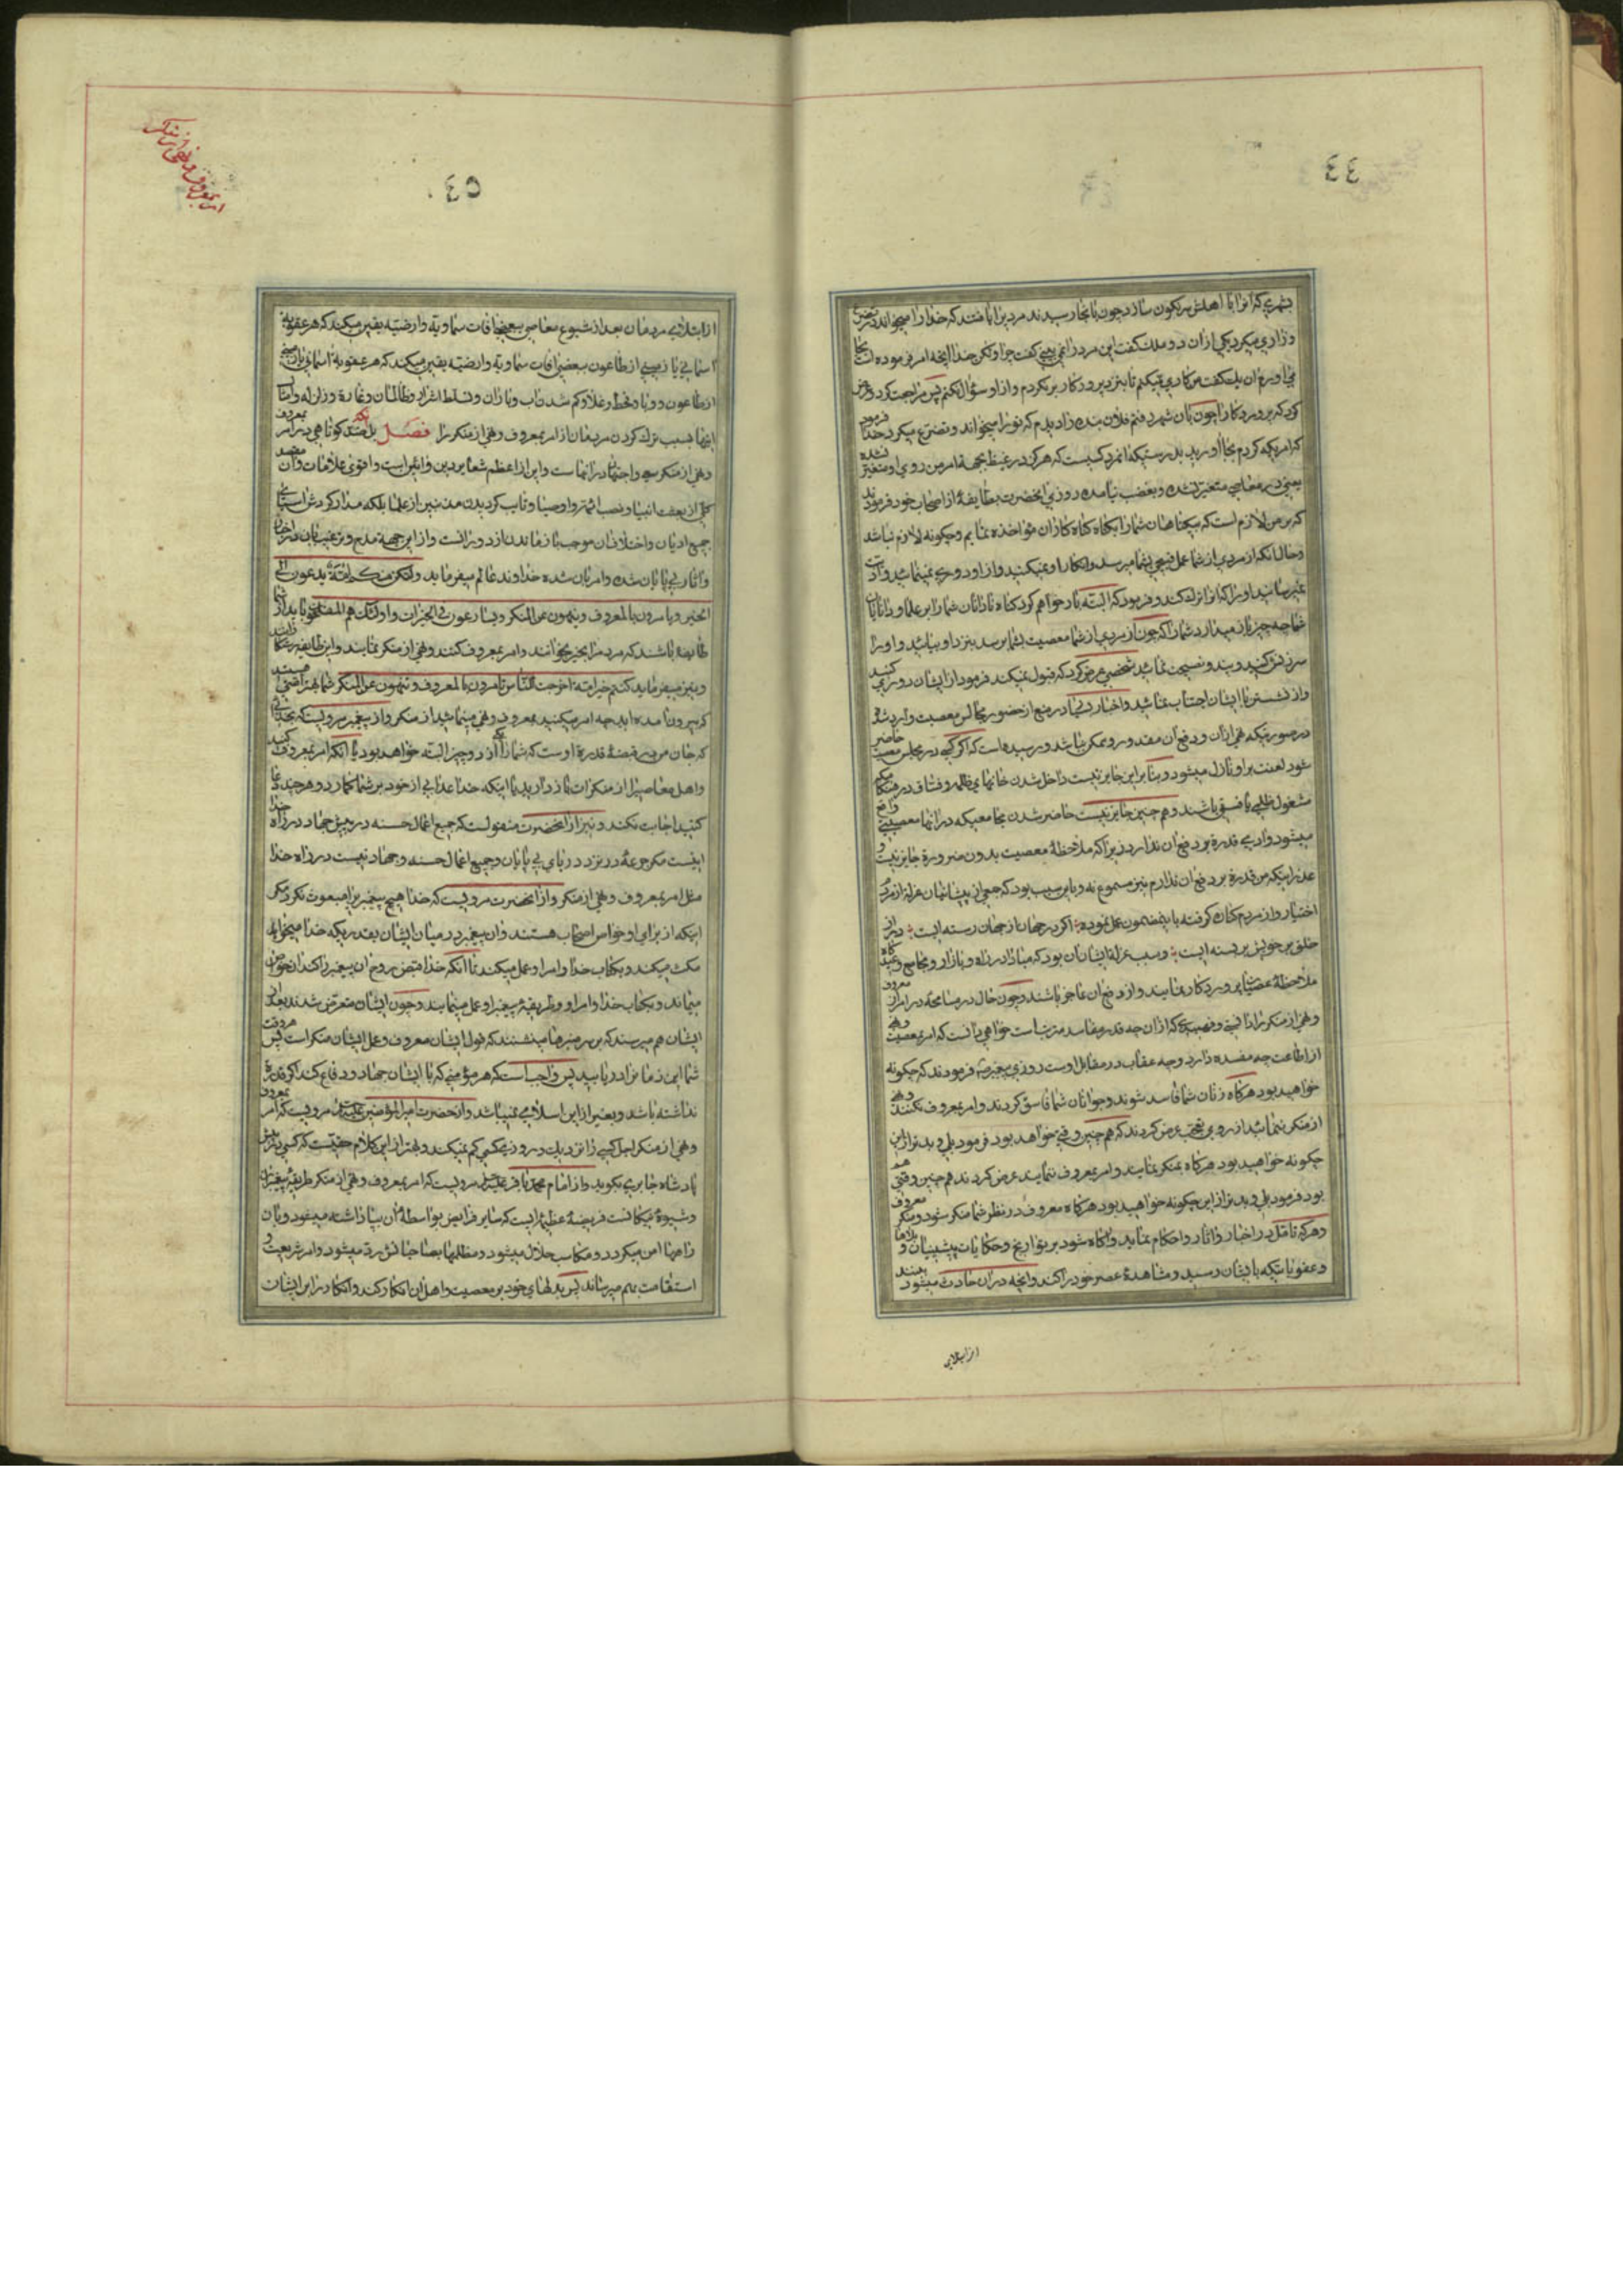 ٤٤
بشهری که انرا با اهلش سرنکون سازد چون بانجا رسیدند مردیرا یافتند که خدا را میخواند و تضرع
و زاری میکرد یکی از ان دو ملک گفت این مرد را نمی بینی گفت چرا ولکن خدا انچه امر فرموده است بجا
می اورم ان یک گفت من کاری نمیکنم تا بنزد پروردکار برنکردم و از او سؤال نکنم پس مراجعت کرد و عرض
کرد که پروردکارا چون بان شهر رفتم فلان بنده را دیدم که تو را میخواند و تضرع میکرد خدا فرمود
که امریکه کردم بجا اورید بدرستیکه انمرد کسیست که هرکز در غیظ بجهة امر من روی او متغیر نشده
یعنی در معاصی متغیر نشده و بغضب نیامده روزی انحضرت بطایفهٔ از اصحاب خود فرمودند
که بر من لازم است که بیکناهان شما را بکناه کناه کاران مؤاخذه نمایم و چکونه لازم نباشد
و حال انکه از مردی از شما عمل قبیحی بشما میرسد و انکار او نمیکنید و از او دوری نمینمائید و اذیت
نمیرسانید او را که انرا ترک کند و فرمود که البته بار خواهم کرد کناه نادانان شما را بر علما و دانایان
شما چه چیز باز میدارد شما را که چون از مردی از شما معصیت بشما برسد بنزد او بیائید و او را
سرزنش کنید و پند و نصیحت نمائید شخصی عرض کرد که قبول نمیکند فرمود از ایشان دوری کنید
و از نشستن با ایشان اجتناب نمائید و اخبار بسیار در منع از حضور مجالس معصیت وارد شده
در صورتیکه نهی از ان و دفع ان مقدور و ممکن نباشد و رسیده است که اکر کسی در مجلس معصیت حاضر
شود لعنت بر او نازل میشود و بنا بر این جایز نیست داخل شدن خانهای ظلمه و فساق در هنکامیکه
مشغول ظلمی یا فسق باشند و هم چنین جایز نیست حاضر شدن مجامعیکه در انها معصیتی واقع
میشود و ادمی قدرة بر دفع ان ندارد زیرا که ملاحظهٔ معصیت بدون ضرورة جایز نیست و
عذر اینکه من قدرة بر دفع ان ندارم نیز مسموع نه و باین سبب بود که جمعی از پیشینیان عزلة از مردم
اختیار و از مردم کناره کرفته باین مضمون عمل نموده اکر در جهان از جهان رسته ایست در از
خلق بر خویش بر بسته ایست و سبب عزلة ایشان ان بود که مبادا در راه و بازار و مجامع و عید کاه
ملاحظهٔ عصیان پروردکار نمایند و از دفع ان عاجز باشند و چون حال در مسامحه در امر معروف
و نهی از منکر را دانستی و فهمیدی که از ان چه قدر مفاسد مترتب است خواهی دانست که امر بمعصیت و نهی
از اطاعت چه مفسده دارد و چه عقاب در مقابل اوست روزی پیغمبر ص فرمودند که چکونه
خواهید بود هرکاه زنان شما فاسد شوند و جوانان شما فاسق کردند و امر بمعروف نکنند و نهی
از منکر ننمائید از روی تعجب عرض کردند که هم چنین وقتی خواهد بود فرمود بلی و بدتر از این
چکونه خواهید بود هرکاه بمنکر نمایند و امر بمعروف ننمایند عرض کردند هم چنین وقتی هم
بود فرمود بلی و بدتر از این چکونه خواهید بود هرکاه معروف در نظر شما منکر شود و منکر معروف
و هرکه تامل در اخبار و اثار و احکام نماید و اکاه شود بر تواریخ و حکایات پیشینیان و بلاها
و عقوباتیکه بایشان رسید و مشاهدهٔ عصر خود را کند و انچه در ان حادث میشود ببیند
از ابتلای
امر بمعروف و نهی از منکر
٤٥
از ابتلای مردمان بعد از شیوع معاصی ببعضی افات سماویة و ارضیة یقین میکند که هر عقوبة
اسمانی یا زمینی از طاعون ببعضی افات سماویة و ارضیة یقین میکند که هر عقوبة اسمانی یا زمینی
از طاعون و وبا و قحط و غلا و کم شدن اب و باران و تسلط اشرار و ظالمان و غارة و زلزله و امثال
اینها بسبب ترک کردن مردمان از امر بمعروف و نهی از منکر را فصل بدانکه ضد کوتاهی در امر بمعروف
و نهی از منکر سعی و اجتهاد در انهاست و این از اعظم شعایر دین و ائین است و اقوی علامات و ان مقصد
کلی از بعثت انبیا و نصب ائمه و اوصیا و نایب کردیدن متدینین از علما بلکه مدار کردش اسیای
جمیع ادیان و اختلال ان موجب باز ماندن از دورانست و از این جهة مدح و ترغیب بان در اخبار
و اثار بی پایان شده و امر بان شده خداوند عالم میفرماید ولتکن منکم امة یدعون الی
الخیر و یامرون بالمعروف و ینهون عن المنکر و یسارعون فی الخیرات و اولئک هم المفلحون باید از شما
طایفه باشند که مردم را بخیر بخوانند و امر بمعروف کنند و نهی از منکر نمایند و این طایفه رستکارانند
و نیز میفرماید کنتم خیر امة اخرجت للناس تامرون بالمعروف و تنهون عن المنکر شما بهتر امتی هستید
که بیرون امده اید چه امر میکنید بمعروف و نهی مینمائید از منکر و از پیغمبر مرویست که بخدائی
که جان من در قبضهٔ قدرة اوست که شما را از دو چیز یکی البته خواهد بود یا انکه امر بمعروف کنید
و اهل معاصی را از منکرات باز دارید یا اینکه خدا عذابی از خود بر شما کمارد و هر چند دعا
کنید اجابت نکند و نیز از انحضرت منقولست که جمیع اعمال حسنه در پیش جهاد در راه خدا
نیست مکر جرعهٔ در نزد دریای بی پایان و جمیع اعمال حسنه و جهاد نیست در راه خدا
مثل امر بمعروف و نهی از منکر و از انحضرت مرویست که خدا هیچ پیغمبر را مبعوث نکرد مکر
اینکه از برای او خواص اصحاب هستند و ان پیغمبر در میان ایشان بقدریکه خدا میخواهد
مکث میکند و بکتاب خدا و امر او عمل میکند تا انکه خدا قبض روح ان پیغمبر را کند ان خواص
میمانند و بکتاب خدا و امر او و طریقهٔ پیغمبر او عمل مینمایند و چون ایشان منقرض شدند بعد از
ایشان هم میرسند که بر سر منبرها مینشینند که قول ایشان معروف و عمل ایشان منکر است پس هر وقت
شما این زمان را دریابید پس واجب است که هر مؤمنی که با ایشان جهاد و دفاع کند اکر قدرة
نداشته باشد و بغیر از این اسلامی نمیباشد و از حضرت امیرالمؤمنین علیه السلام مرویست که امر بمعروف
و نهی از منکر اجل کسی را نزدیک و روزی کسی کم نمیکند و بهتر از این کلام حقیست که کسی در پیش
پادشاه جابری بکوید و از امام محمد باقر علیه السلام مرویست که امر بمعروف و نهی از منکر طریقهٔ پیغمبران
و شیوهٔ نیکانست فریضهٔ عظیم ایست که سایر فرایض بواسطهٔ ان بپا داشته میشود و بان
راهها امن میکردد و مکاسب حلال میشود و مظلمها بصاحبانش رد میشود و امر شریعت و
استقامت بهم میرساند پس بدلهای خود بر معصیت و اهل ان انکار کند و انکار در ابر ایشان